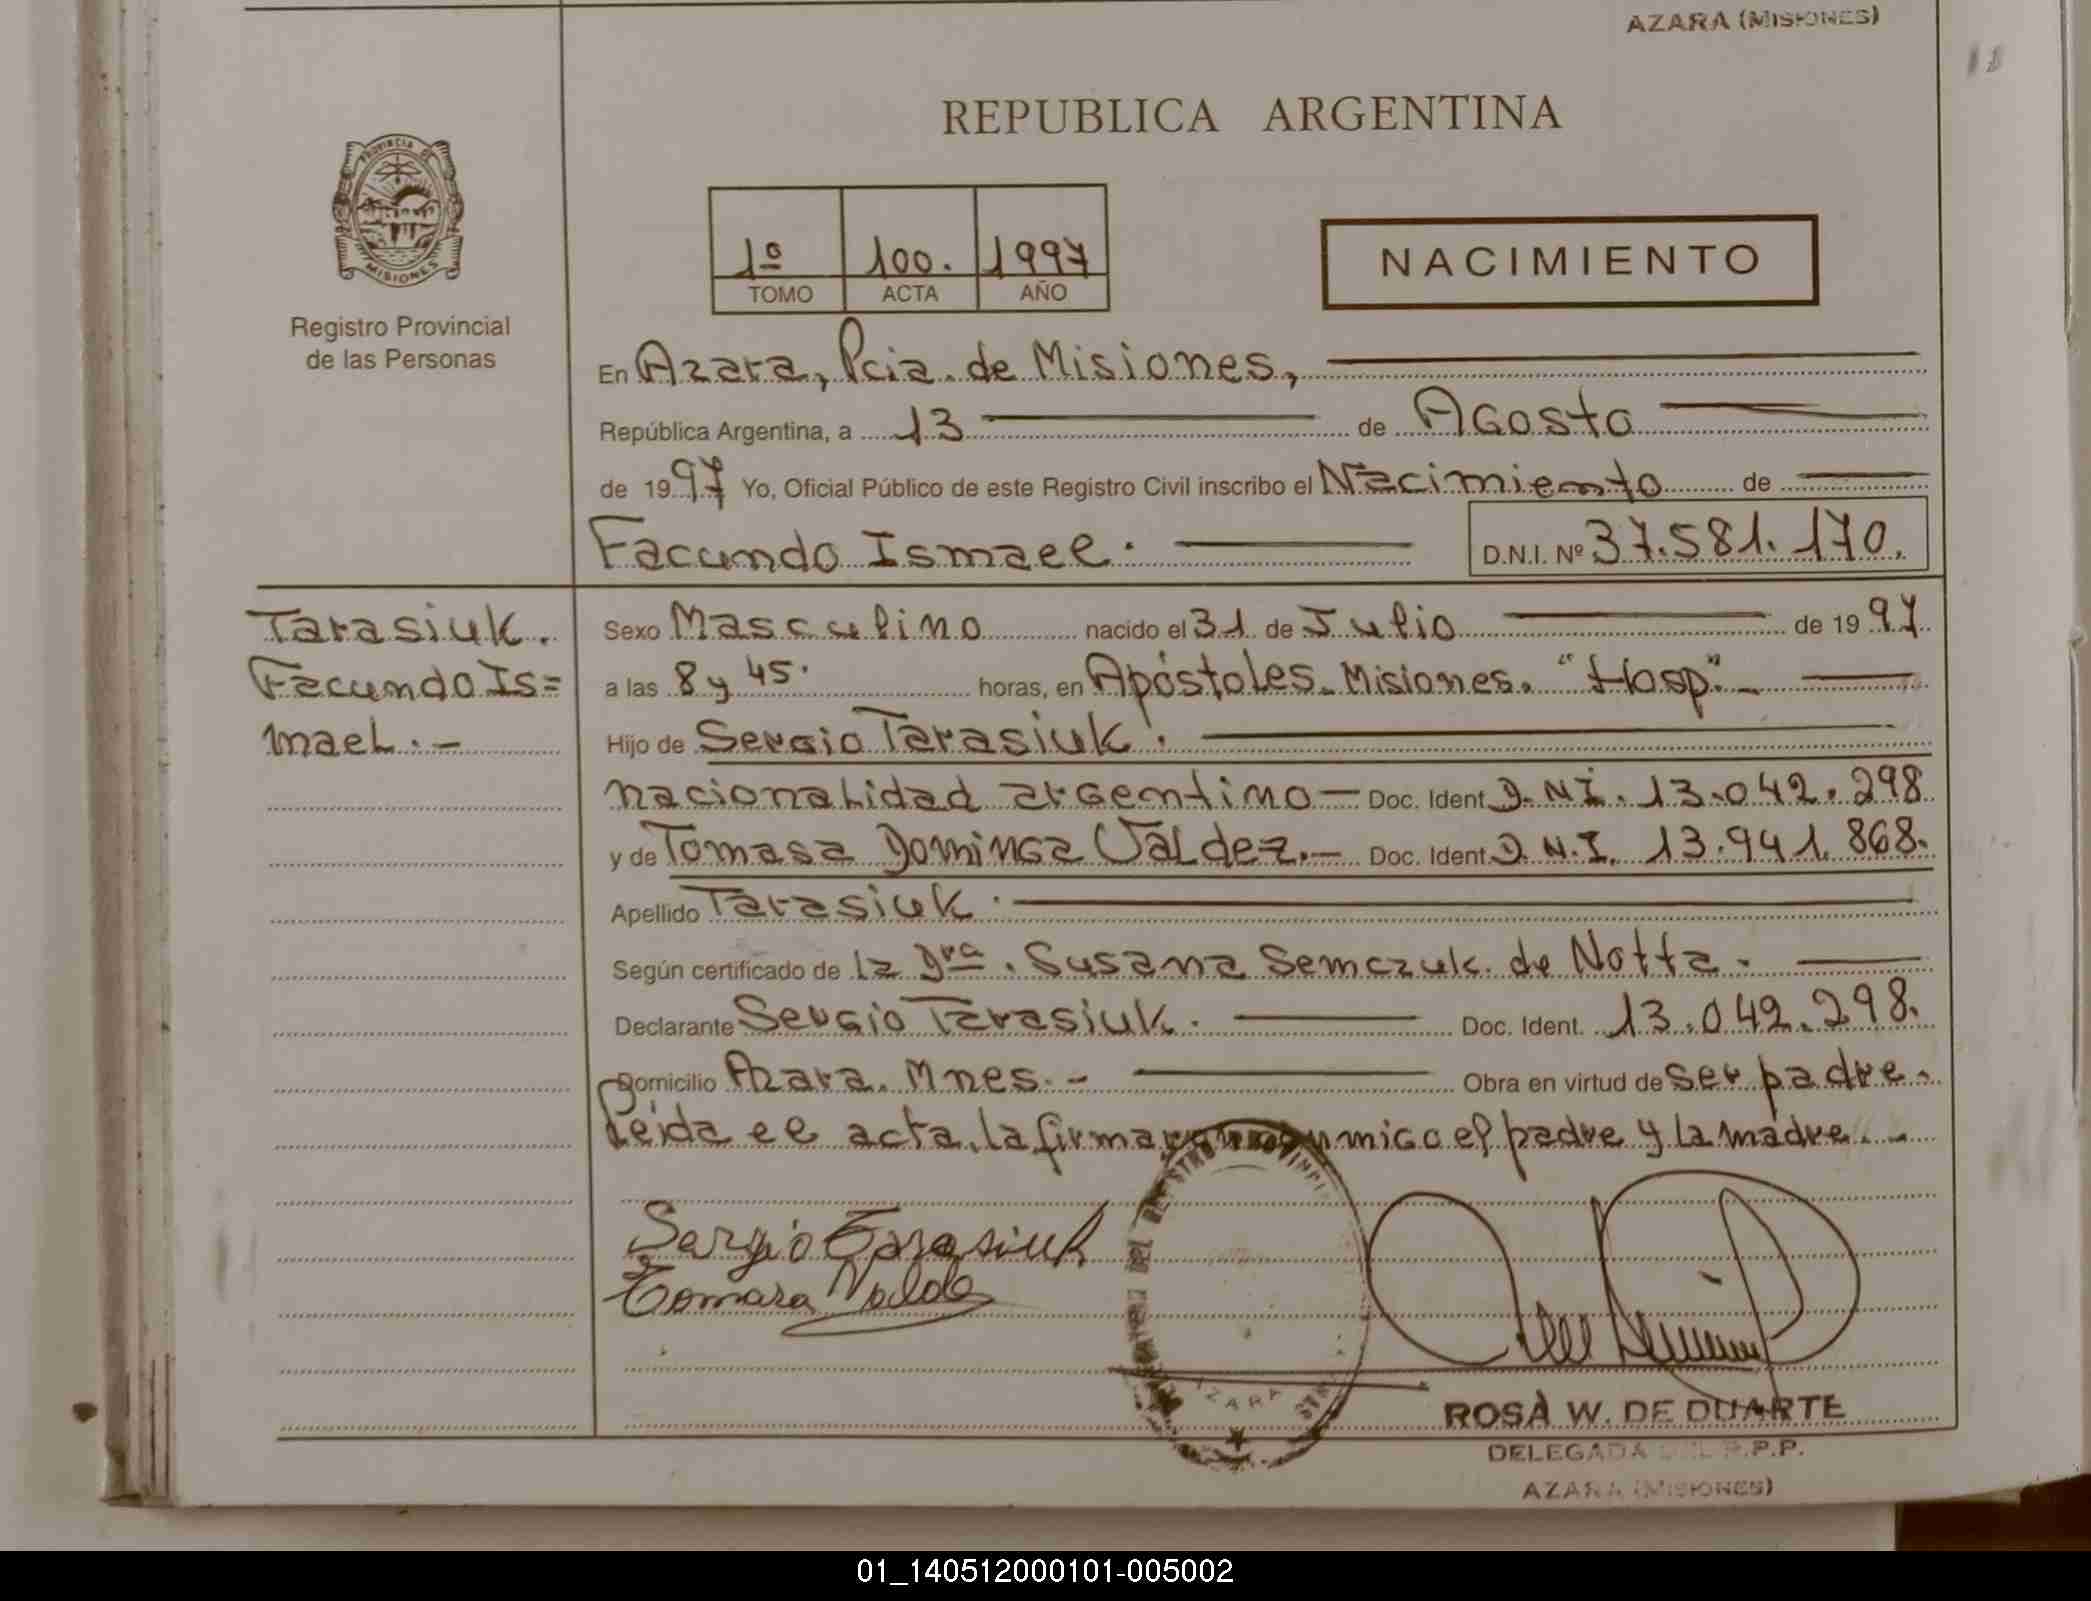 AZARA (MISIONES)
REPUBLICA ARGENTINA
PROVINCIA DE
MISIONES
Registro Provincial
de las Personas
1º 100. 1997
TOMO ACTA AÑO
NACIMIENTO
En Azara, Pcia. de Misiones,
República Argentina, a 13 de Agosto
de 1997 Yo, Oficial Público de este Registro Civil inscribo el Nacimiento de
Facundo Ismael. D.N.I. Nº 37.581.170.
Tarasiuk.
Facundo Is=
mael.-
Sexo Masculino nacido el 31 de Julio de 1997
a las 8 y 45. horas, en Apóstoles. Misiones. "Hosp".-
Hijo de Sergio Tarasiuk.
nacionalidad argentino - Doc. Ident. D.N.I. 13.042.298
y de Tomasa Dominga Valdez.- Doc. Ident. D.N.I. 13.941.868.
Apellido Tarasiuk.
Según certificado de la Dra. Susana Semczuk de Notta.
Declarante Sergio Tarasiuk. Doc. Ident. 13.042.298.
Domicilio Azara. Mnes.- Obra en virtud de ser padre.
Leida el acta, la firman conmigo el padre y la madre.-
Sergio Tarasiuk
Tomasa Valdez
AZARA
ROSA W. DE DUARTE
DELEGADA DEL R.P.P.
AZARA (MISIONES)
01_140512000101-005002